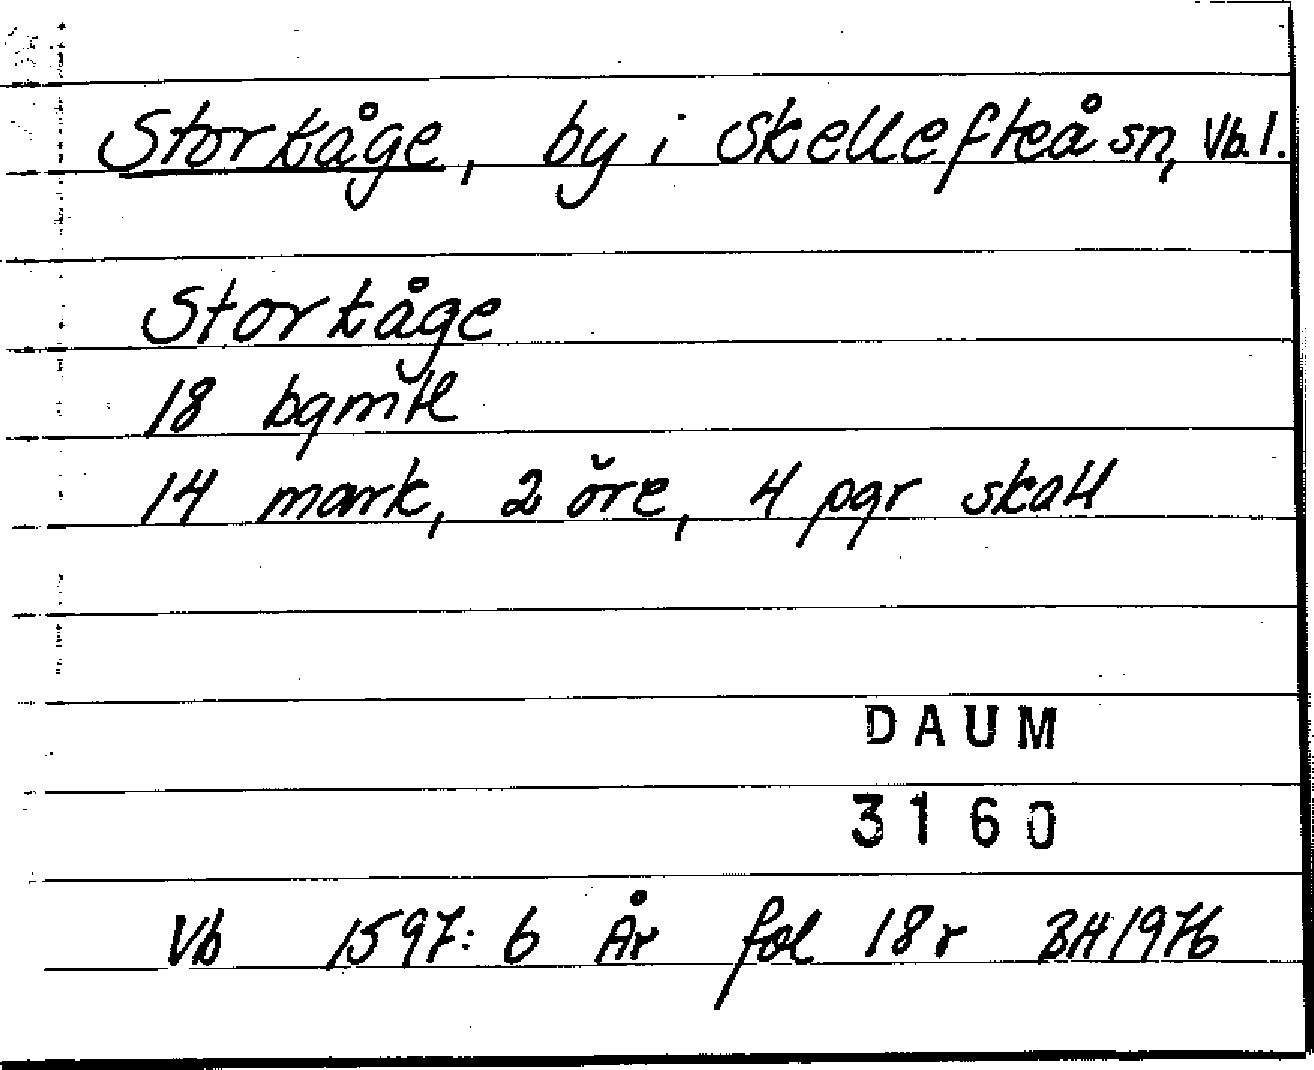 Storkåge, by i Skellefteå sn, Vb. l.
Storkåge
18 bqmtl
14 mark, 2 öre, 4 pgr skatt
DAUM
3160
Vb 1597:6 År fol 18r BH 1976